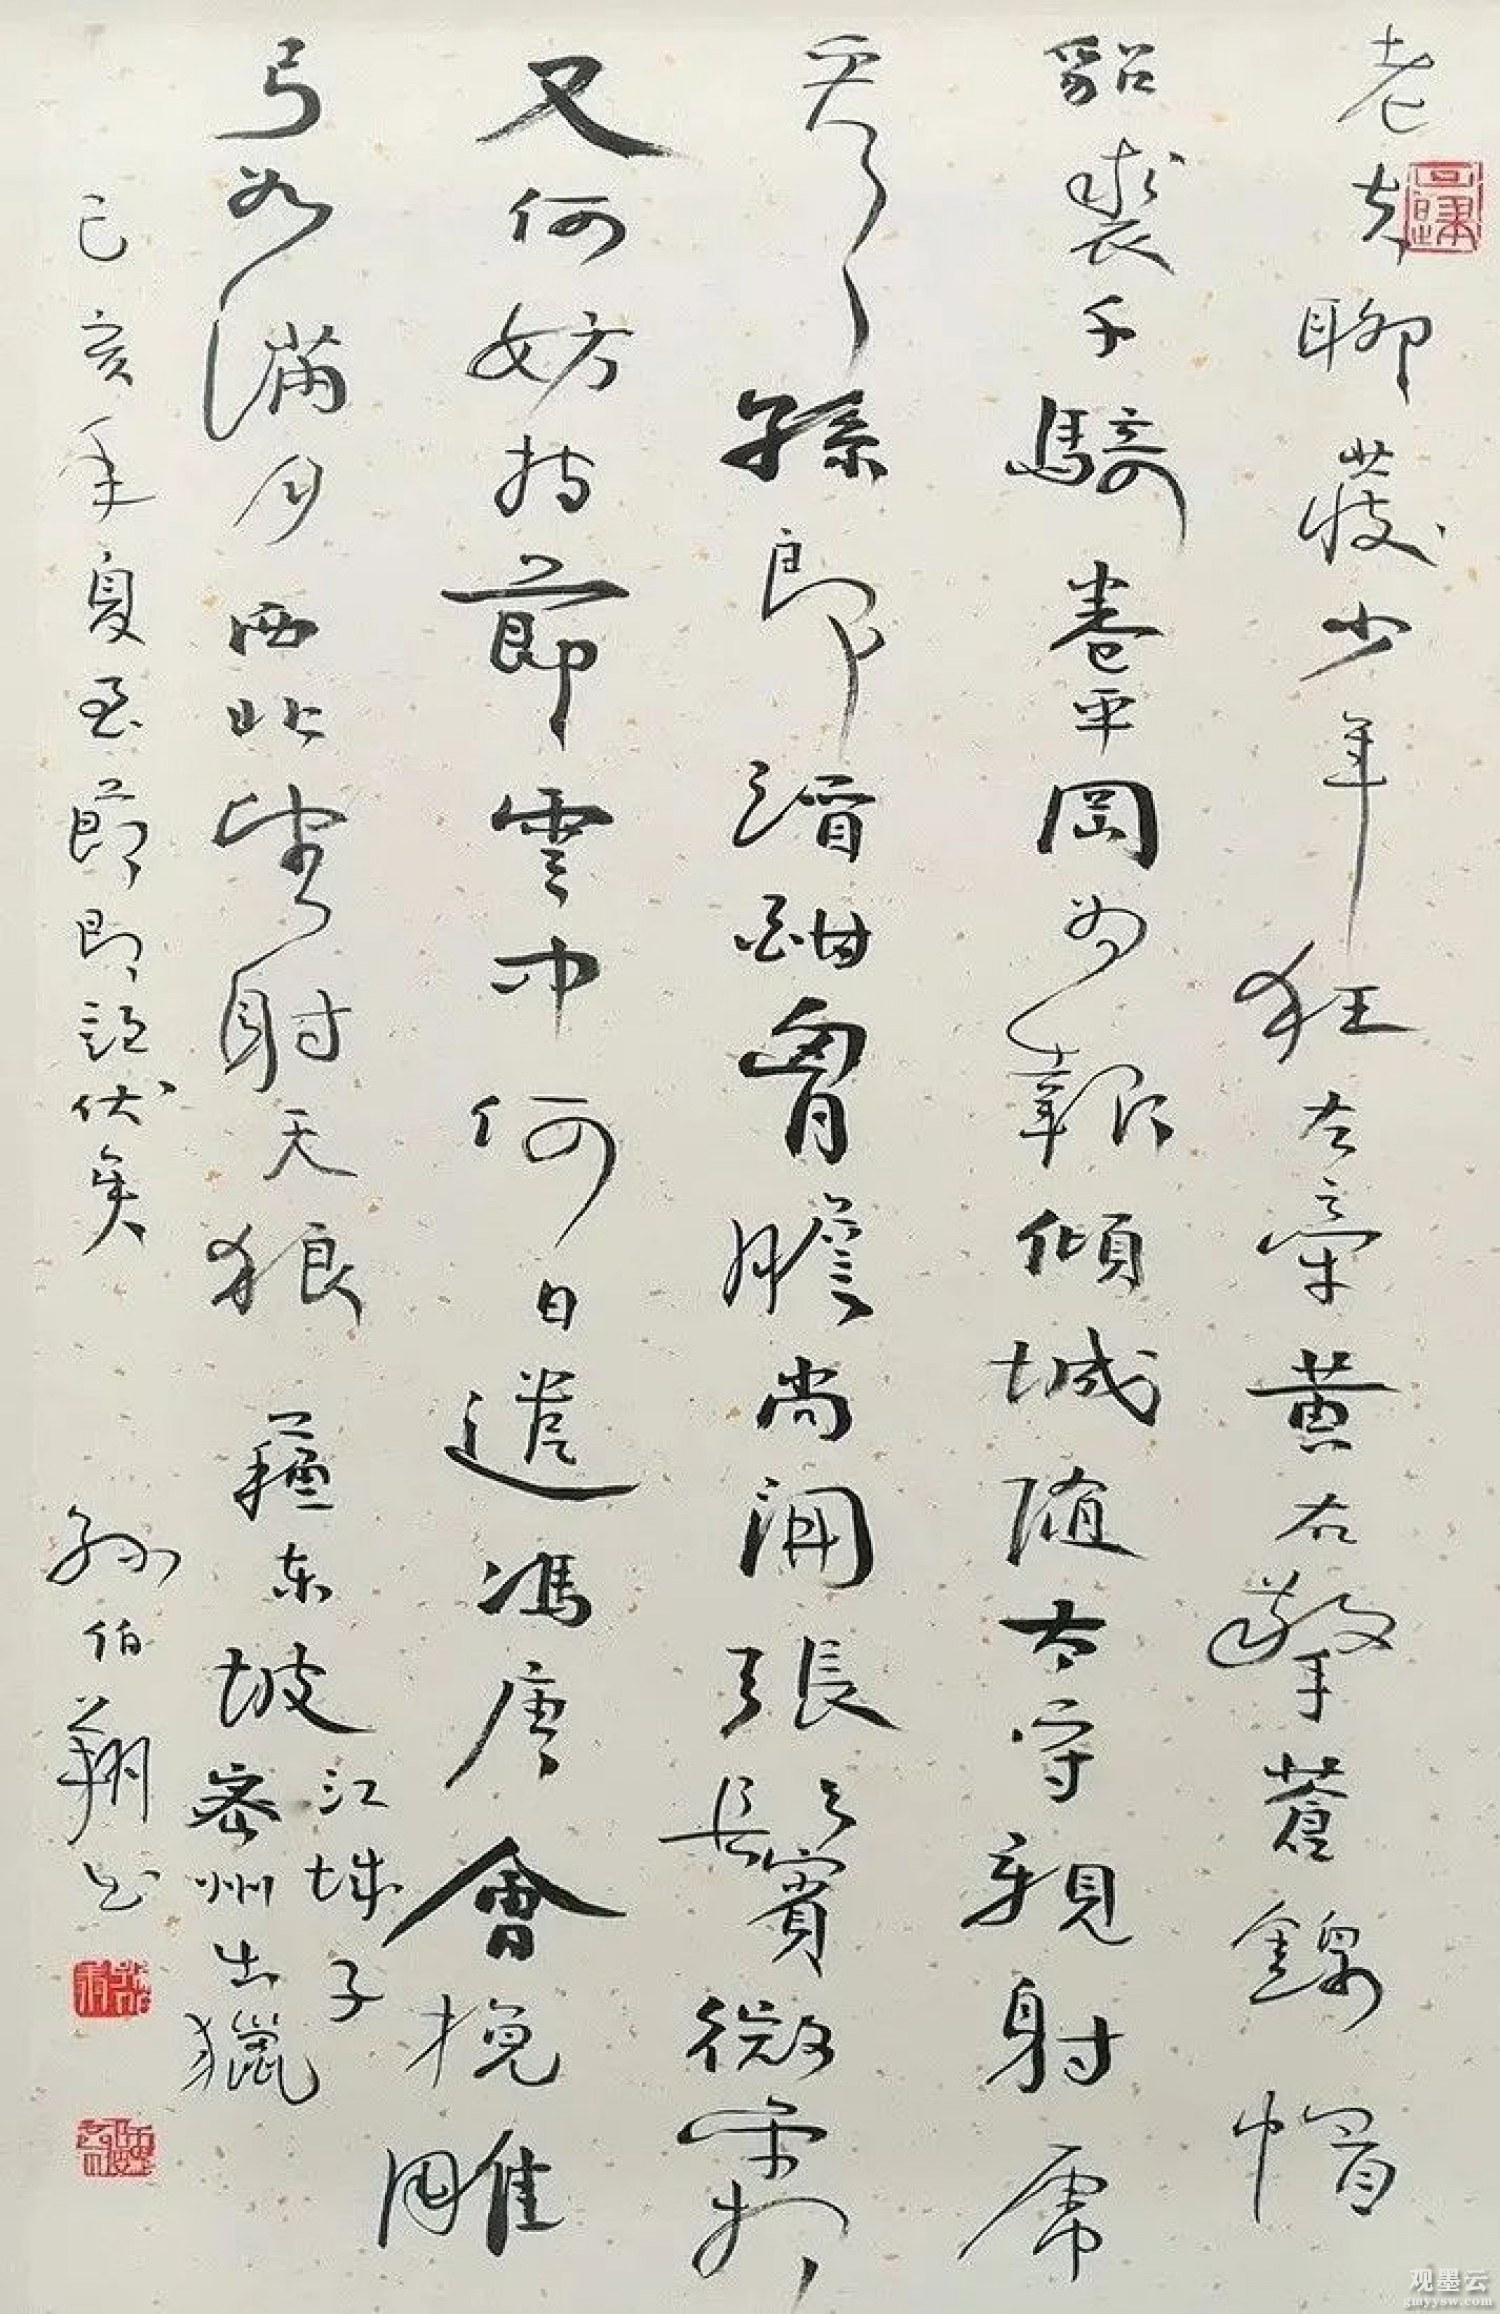 老夫聊發少年狂左牽黃右擎蒼錦帽
貂裘千騎卷平岡為報傾城隨太守親射虎
看孫郎酒酣胷膽尚開張鬢微霜
又何妨持節雲中何日遣馮唐會挽雕
弓如滿月西北望射天狼 蘇東坡江城子
密州出獵
己亥年夏至節即認伏矣
孫伯翔書
观墨云
gmyysw.com